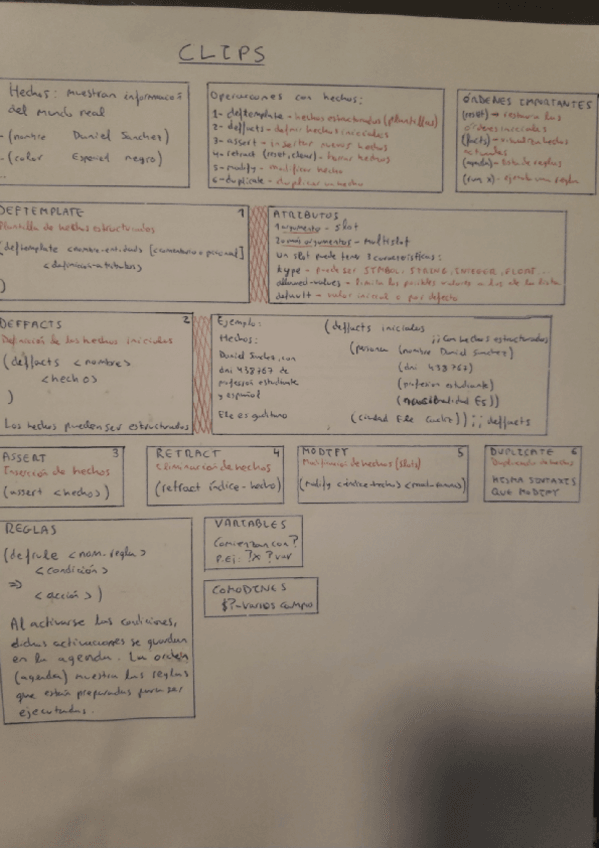 CLIPS
Hechos: muestran informacos
del mundo real
-(nombre Daniel Sanchez)
-(color Español negro)
...
Operaciones con hechos:
1- deftemplate - hechos estructurados (plantillas)
2- deffacts - definir hechos iniciales
3- assert - insertar nuevos hechos
4- retract (reset, clear) - borrar hechos
5- modify - modificar hecho
6- duplicate - duplicar un hecho
ÓRDENES IMPORTANTES
(reset) → restaura los
órdenes iniciales
(facts) - visualiza hechos
actuales
(agenda) - lista de reglas
(run x) - ejecuta una regla
DEFTEMPLATE 1
Plantilla de hechos estructurados
(deftemplate <nombre-entidad> [comentario opcional]
<definicion-atributos>
)
ATRIBUTOS
1 argumento - slot
2 o más argumentos - multislot
Un slot puede tener 3 características:
type - puede ser SYMBOL, STRING, INTEGER, FLOAT...
allowed-values - limita los posibles valores a los de la lista
default - valor inicial o por defecto
DEFFACTS 2
Definición de los hechos iniciales
(deffacts <nombre>
<hecho>
)
Los hechos pueden ser estructurados
Ejemplo:
Hechos:
Daniel Sanchez, con
dni 438767 de
profesion estudiante
y español
Ele es gaditano
(deffacts iniciales
;; Con hechos estructurados
(persona (nombre Daniel Sanchez)
(dni 438767)
(profesion estudiante)
(nacionalidad Es))
(ciudad Ele Cadiz)) ;; deffacts
ASSERT 3
Inserción de hechos
(assert <hechos>)
RETRACT 4
Eliminación de hechos
(retract índice-hecho)
MODIFY 5
Modificación de hechos (slots)
(modify <índice-hecho>
DUPLICATE 6
Duplicado de hechos
MISMA SINTAXIS
QUE MODIFY
REGLAS
(defrule <nom.regla>
<condición>
=>
<acción>)
Al activarse las condiciones,
dichas activaciones se guardan
en la agenda. La orden
(agenda) muestra las reglas
que están preparadas para ser
ejecutadas.
VARIABLES
Comienzan con ?
P.ej: ?x ?var
COMODINES
$?-varios campo